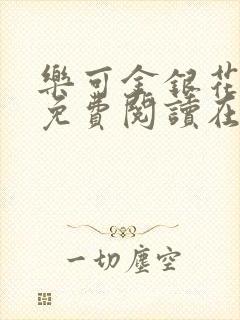 樂可金銀花
免費閱讀在
一切塵空